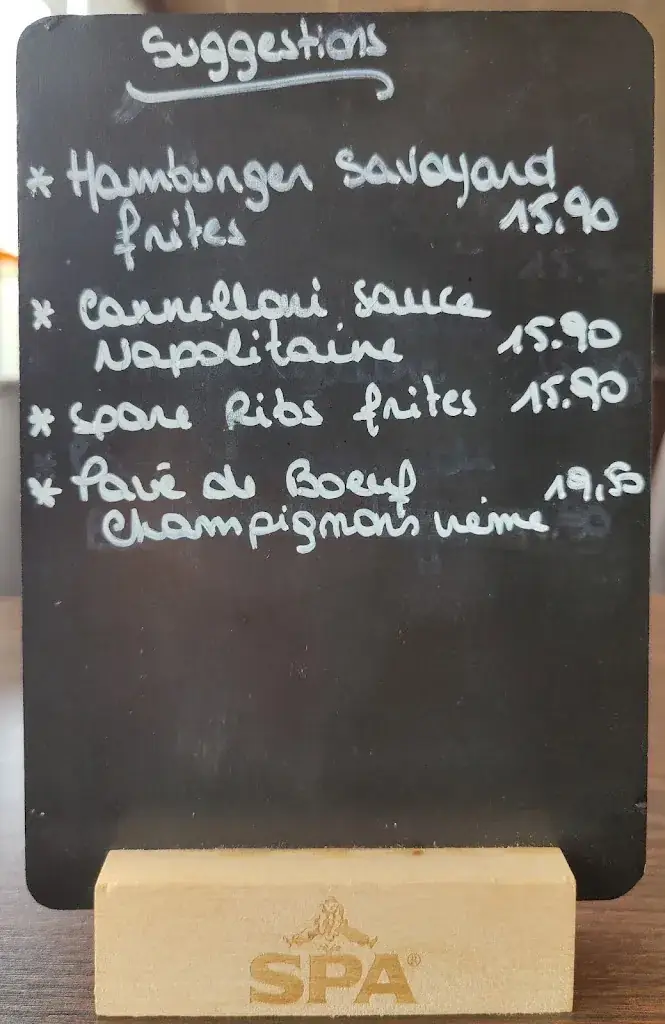 Suggestions
* Hamburger Savoyard
frites 15.90
* Cannelloni sauce
Napolitaine 15.90
* Spare Ribs frites 15.90
* Pavé de Boeuf 19,50
Champignons crème
SPA®